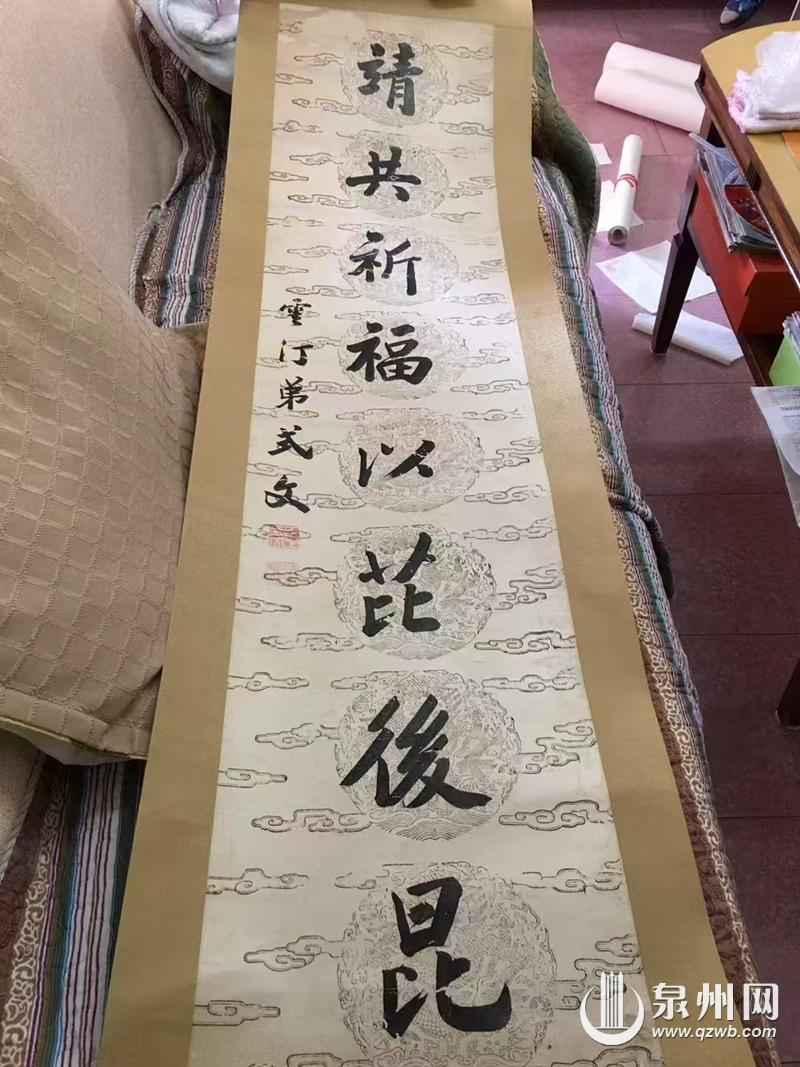 靖共祈福以芘後昆
雲汀弟式文
泉州网
www.qzwb.com